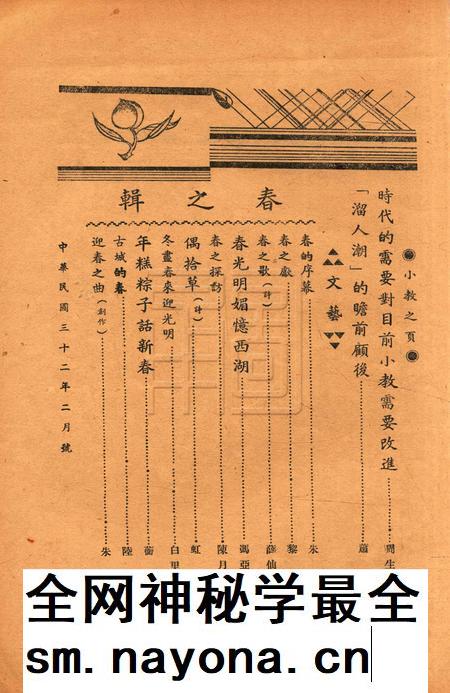 小教之頁
時代的需要對目前小教需要改進
「溜人潮」的瞻前顧後 蕭
文藝
春之輯
春的序幕 朱
春之獻 黎
春之歌(詩) 薛仙
春光明媚憶西湖 馮亞
春之探訪 陳月
偶拾草(詩) 虹
冬盡春來迎光明 白里
年糕粽子話新春 蘅
古城的春 陸
迎春之曲(創作) 朱
中華民國三十二年二月號
全网神秘学最全
sm.nayona.cn